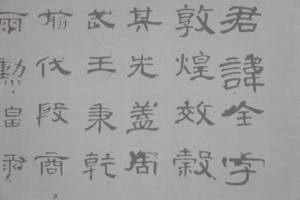 君諱全字
敦煌效穀
其先蓋周
武王秉乾
翦伐殷商
勳